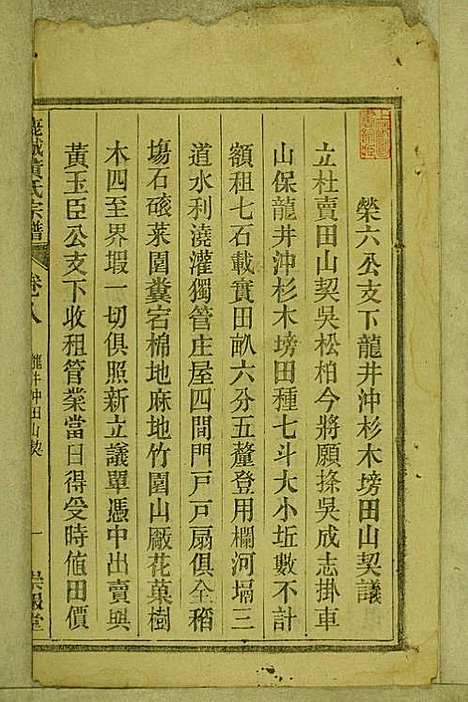 榮六公支下龍井沖杉木塝田山契議
立杜賣田山契吳松柏今將願拚吳成志掛車
山保龍井沖杉木塝田種七斗大小坵數不計
額租七石載實田畝六分五釐登用欄河堨三
道水利澆灌獨管庄屋四間門戸戸扇俱全稻
塲石磙菜園糞宕棉地麻地竹園山廠花菓樹
木四至界塅一切俱照新立議單憑中出賣與
黃玉臣公支下收租管業當日得受時值田價
黃氏宗譜
卷八
龍井沖田山契
一